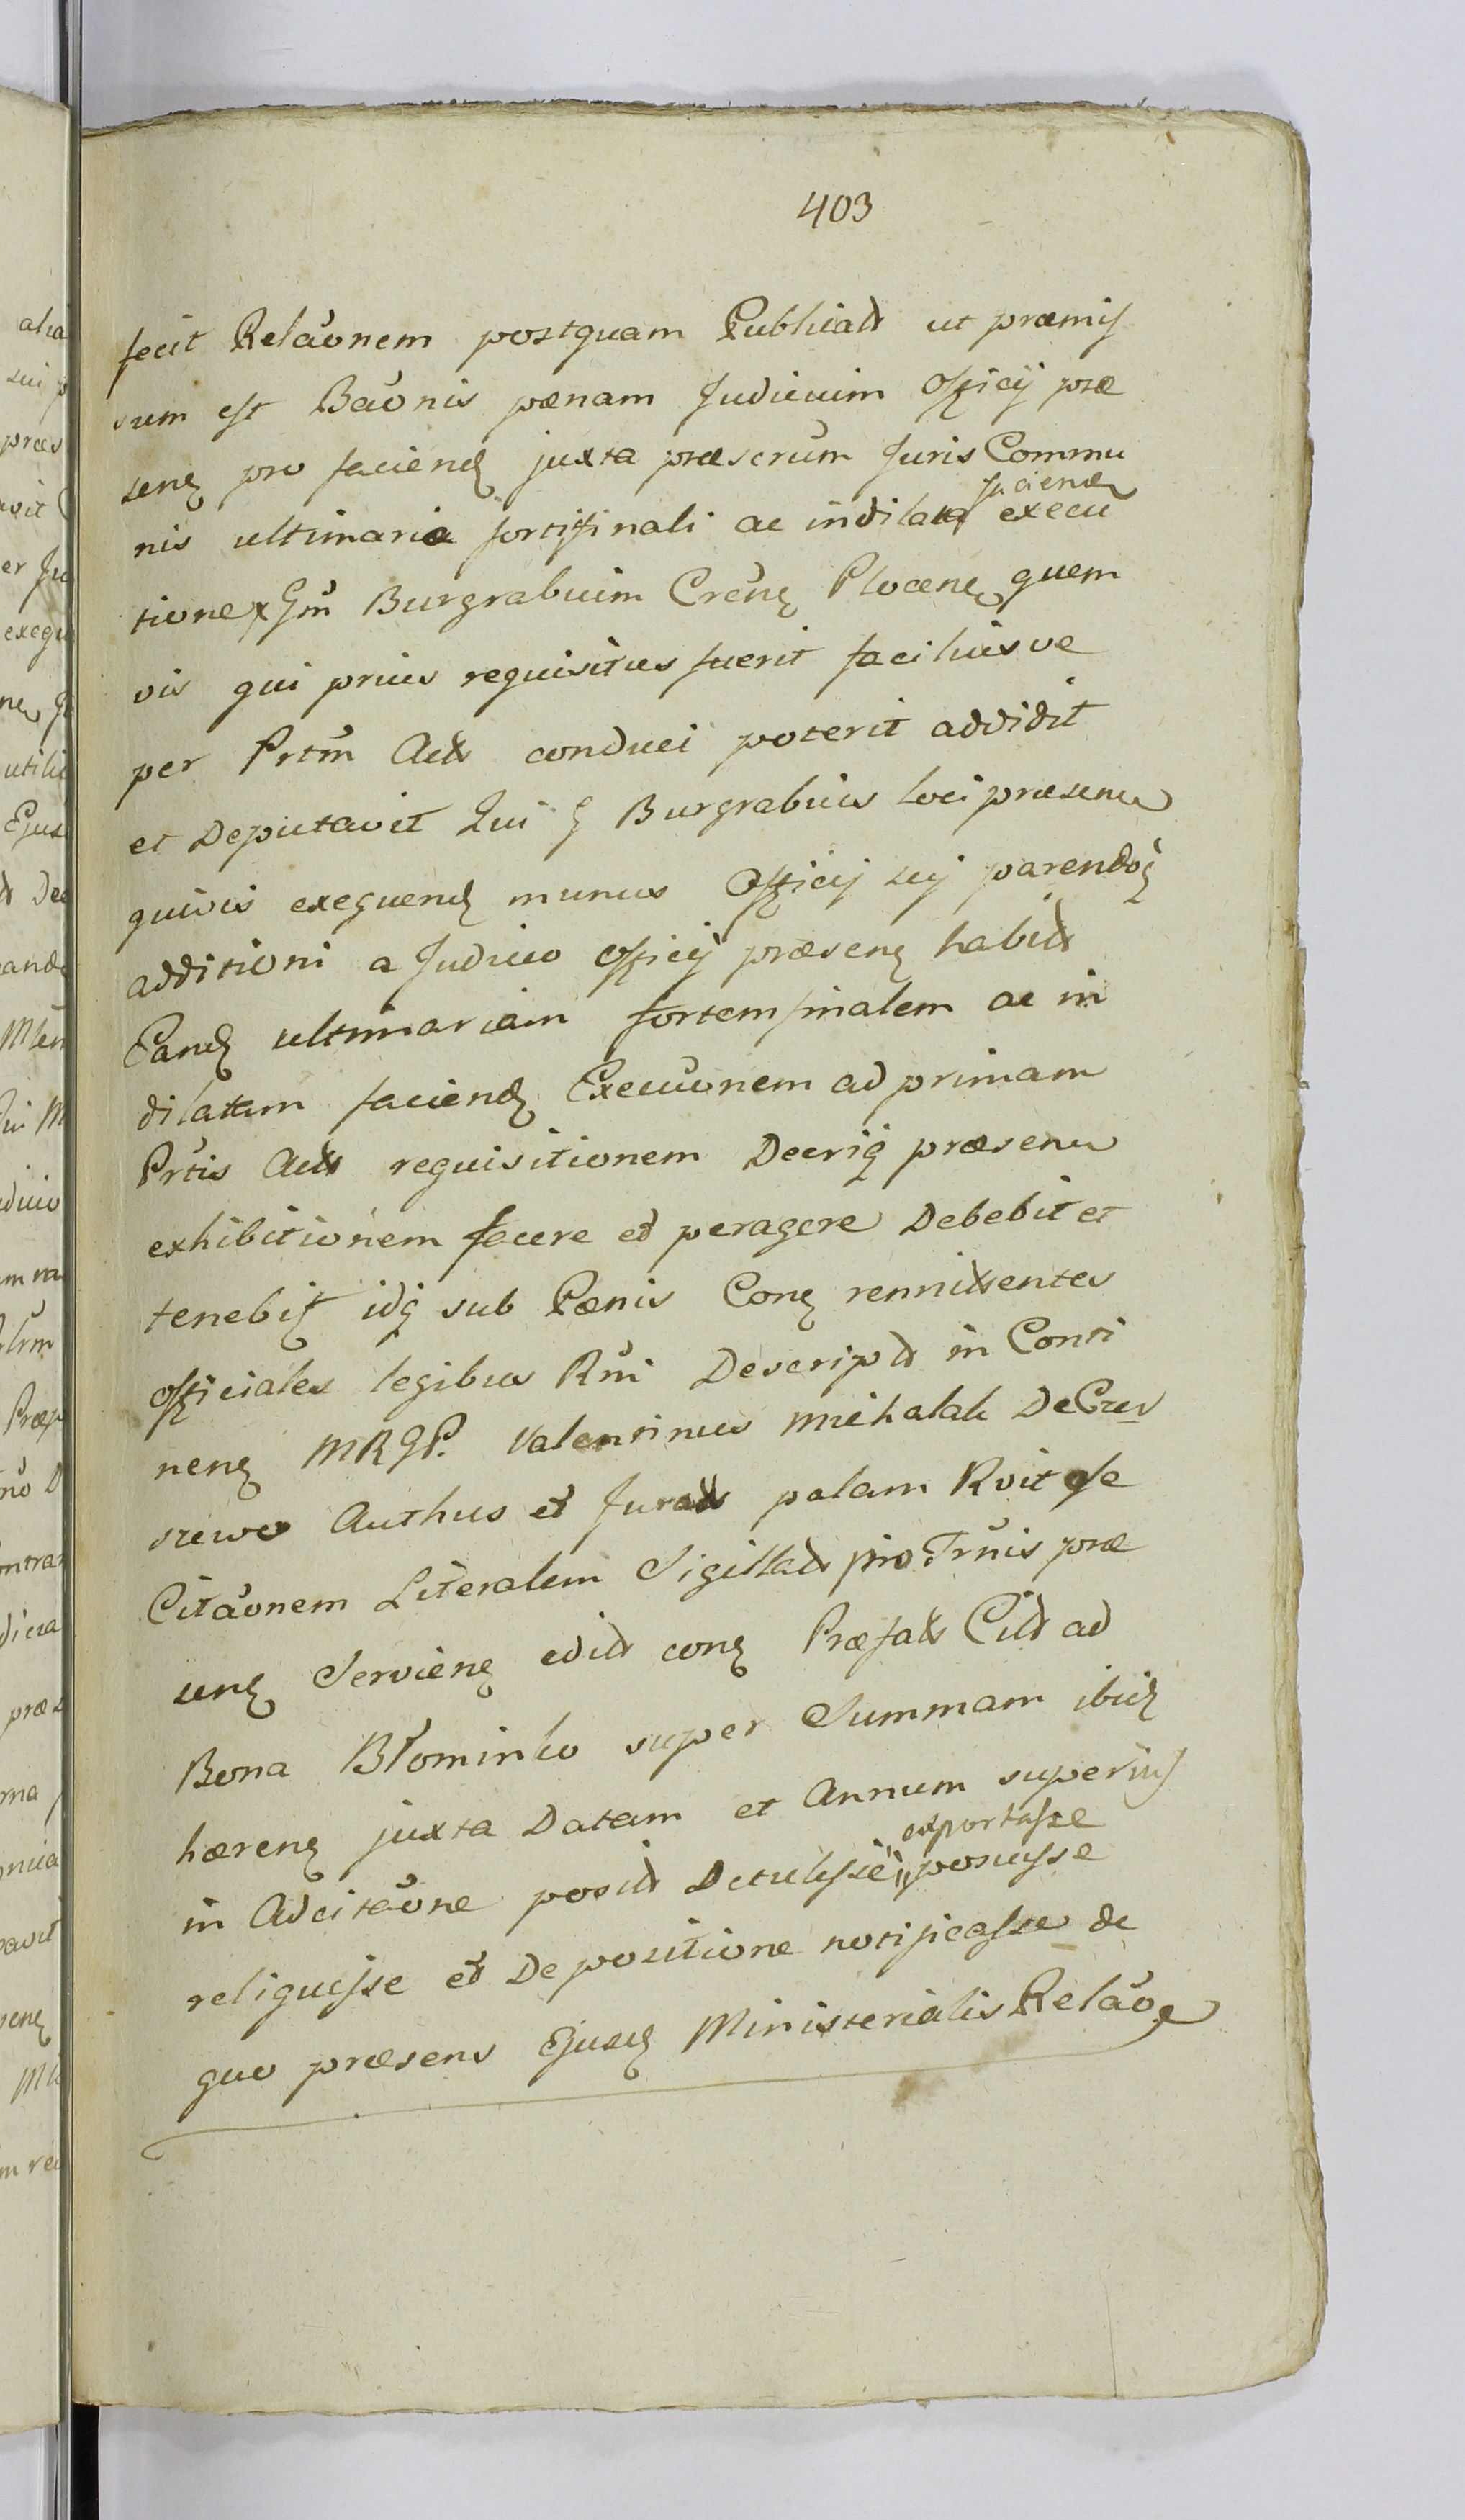 403
fecit Relãonem postquam Publicats ut præmis
sum est Bãonis pænam Judicium Officij præ
senꝫ pro faciendꝫ juxta præscrũm Juris Commu
faciendꝫ
nis ultimaria fortifinali ac indilata execu
tione Gm̃ Burgrabium Crẽnꝫ Plocenꝫ quem
vis qui prius requisitus fuerit faciliusve
per Prtm̃ Acts conduci poterit addidit
et Deputavit Qui G Burgrabius loci præsenꝫ
quivis exequendꝫ munus Officij sui parendoꝗ
additioni a Judicio Officij præsenꝫ habits
Eandꝫ ultimariam fortem finalem ac in
dilatam faciendꝫ Execũonem ad primam
Prtis Acts requisitionem Decriꝗ præsenꝫ
exhibitionem facere et peragere Debebit et
tenebit idꝗ sub Pænis Conꝫ rennitentes
Officiales legibus Rñi Descripts in Conti
nenꝫ MRGP. Valentinus Michalak De Crev
szewo Authus et Jurats palam Rvit se
Citãonem Literalem Sigillats pro Trñis præ
senꝫ Servienꝫ edits conꝫ Præfats Cits ad
Bona Błominko super Summam ibidꝫ
hærenꝫ juxta Datam et Annum superius
exportasse
in Adcitãone posits Detulisse posuisse
reliquisse et De positione notificasse de
quo præsens Ejusdꝫ Ministerialis Relão